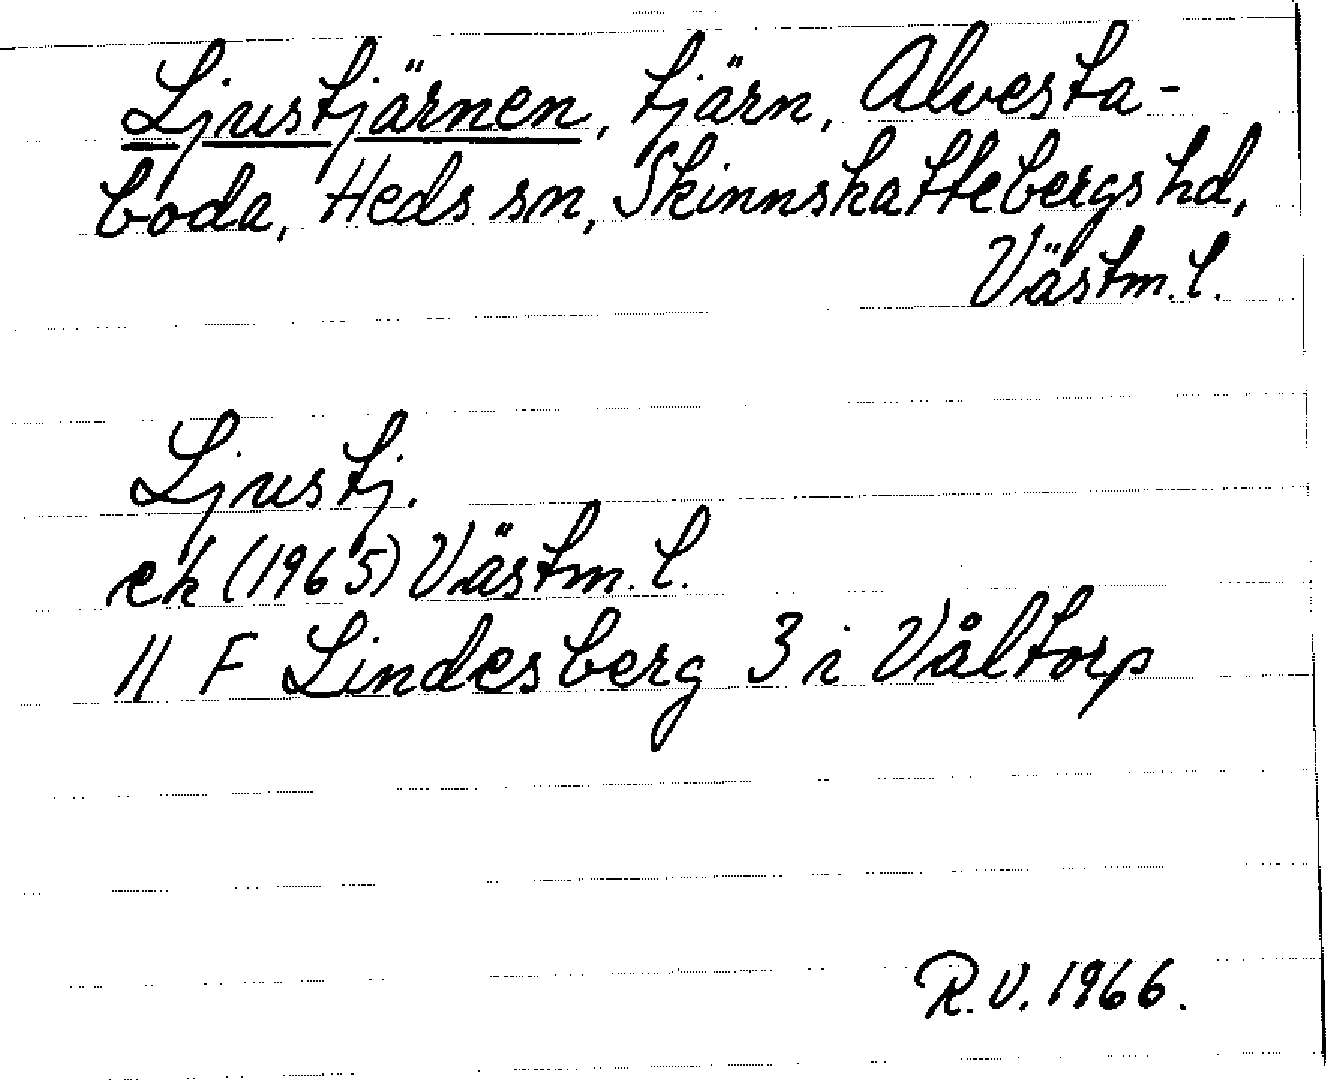 Ljustjärnen, tjärn, Alvesta-
boda, Heds sn, Skinnskattebergs hd,
Västm. l.
Ljustj.
ek (1965) Västm. l.
11 F Lindesberg 3 i Våltorp
R.V. 1966.